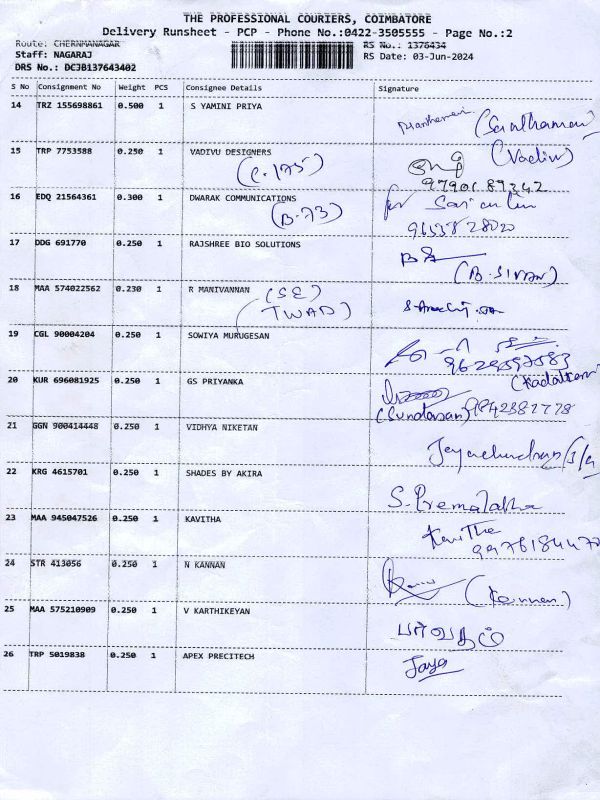 THE PROFESSIONAL COURIERS, COIMBATORE
Delivery Runsheet - PCP - Phone No.:0422-3505555 - Page No.:2
Route: CHERNMANAGAR
RS No.: 1376434
Staff: NAGARAJ
RS Date: 03-Jun-2024
DRS No.: DCJB137643402
S No Consignment No Weight PCS Consignee Details Signature
14 TRZ 155698861 0.500 1 S YAMINI PRIYA
15 TRP 7753588 0.250 1 VADIVU DESIGNERS (Vadiv)
(C-175)
97901 89342
16 EDQ 21564361 0.300 1 DWARAK COMMUNICATIONS for
(B-73)
96558 28020
17 DDG 691770 0.250 1 RAJSHREE BIO SOLUTIONS
(B.SIVAN)
18 MAA 574022562 0.230 1 R MANIVANNAN (SE)
TWAD)
19 CGL 90004204 0.250 1 SOWIYA MURUGESAN
20 KUR 696081925 0.250 1 GS PRIYANKA
(Sundarsan) 9842382778
21 GGN 900414448 0.250 1 VIDHYA NIKETAN
22 KRG 4615701 0.250 1 SHADES BY AKIRA
S. Premalatha
23 MAA 945047526 0.250 1 KAVITHA Kavitha
24 STR 413056 0.250 1 N KANNAN
(Kannan)
25 MAA 575210909 0.250 1 V KARTHIKEYAN
பார்வதி
26 TRP 5019838 0.250 1 APEX PRECITECH Jaya